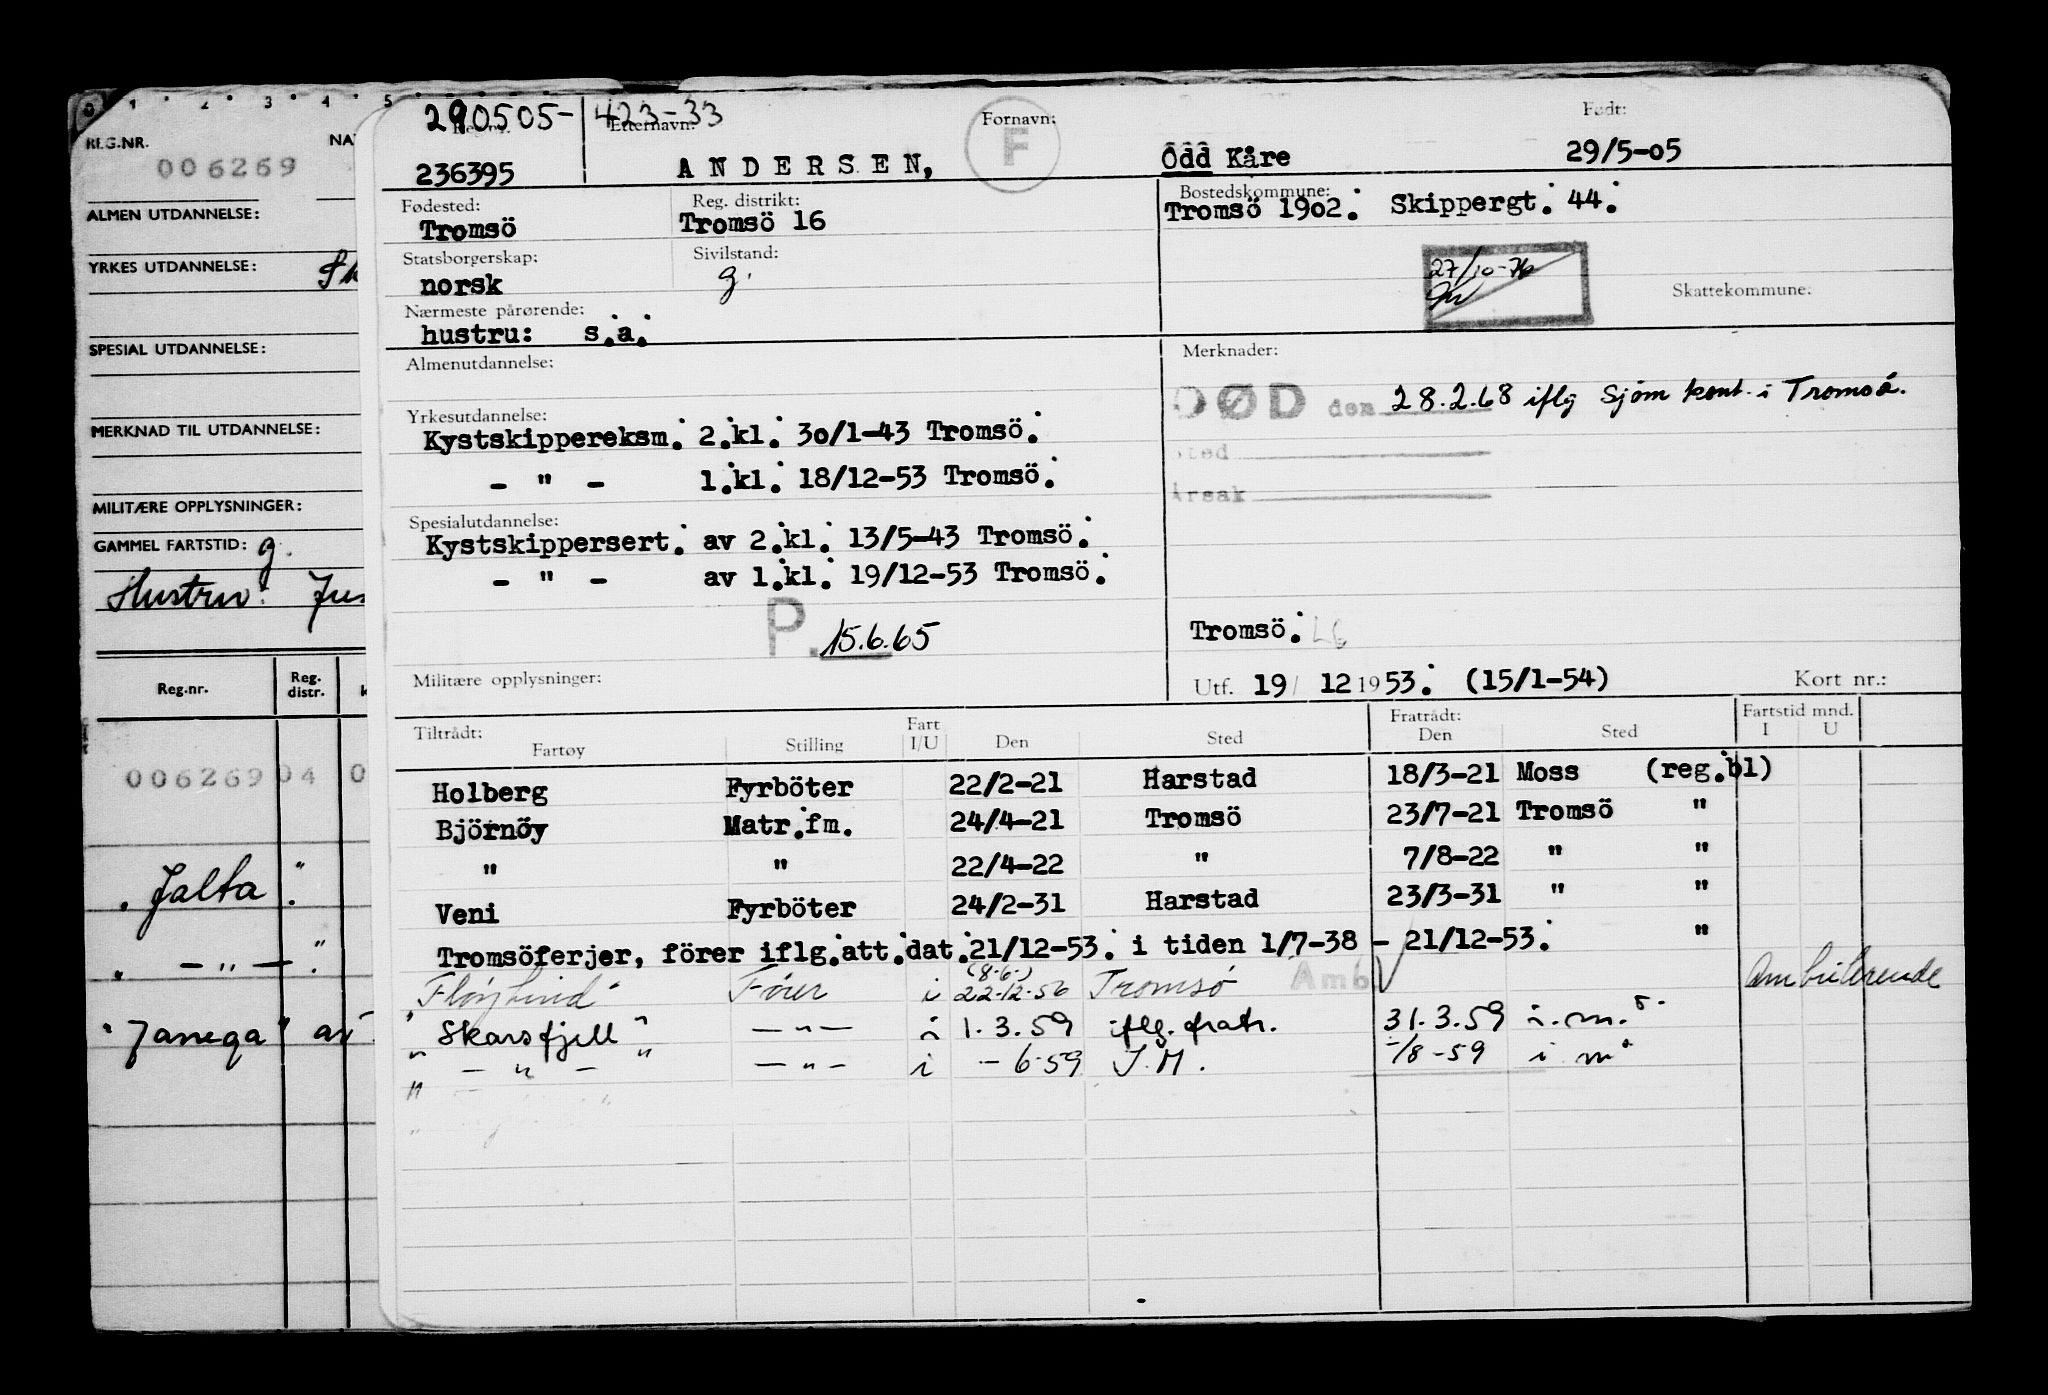 1 2 3 4 5
REG.NR.
006269
ALMEN UTDANNELSE:
YRKES UTDANNELSE:
SPESIAL UTDANNELSE:
MERKNAD TIL UTDANNELSE:
MILITÆRE OPPLYSNINGER:
GAMMEL FARTSTID: g.
Hustru:
Reg.nr. Reg. distr.
00626904 0
" Jalta "
" — " — "
" Janega "
290505- 423-33
Reg.nr. Etternavn: Fornavn: Født:
F
236395 ANDERSEN, Odd Kåre 29/5-05
Fødested: Reg. distrikt: Bostedskommune:
Tromsö Tromsö 16 Tromsö 1902. Skippergt. 44.
Statsborgerskap: Sivilstand:
norsk g. 27/10-76
Skattekommune:
Nærmeste pårørende:
hustru: s.a.
Almenutdannelse: Merknader:
DØD den 28.2.68 iflg Sjøm kont. i Tromsø.
Yrkesutdannelse:
Kystskippereksm. 2.kl. 30/1-43 Tromsö.
Sted
- " - 1.kl. 18/12-53 Tromsö.
Årsak
Spesialutdannelse:
Kystskippersert. av 2.kl. 13/5-43 Tromsö.
- " - av 1.kl. 19/12-53 Tromsö.
P. 15.6.65 Tromsö.
Militære opplysninger: Utf. 19/ 12 1953. (15/1-54) Kort nr.:
Tiltrådt: Fart Fratrådt: Fartstid mnd.
Fartøy Stilling I/U Den Sted Den Sted I U
Holberg Fyrböter 22/2-21 Harstad 18/3-21 Moss (reg.bl)
Björnöy Matr.fm. 24/4-21 Tromsö 23/7-21 Tromsö "
" " 22/4-22 " 7/8-22 " "
Veni Fyrböter 24/2-31 Harstad 23/3-31 " "
Tromsöferjer, förer iflg.att.dat.21/12-53. i tiden 1/7-38 - 21/12-53. "
(8.6.)
Fører i 22-12-56 Tromsø Amb Ambulerende
" Skarsfjell " — " — i 1.3.59 iflg. fratr. 31.3.59 i.m.
" — " — " — " — i - 6-59 J.M. -/8-59 i m